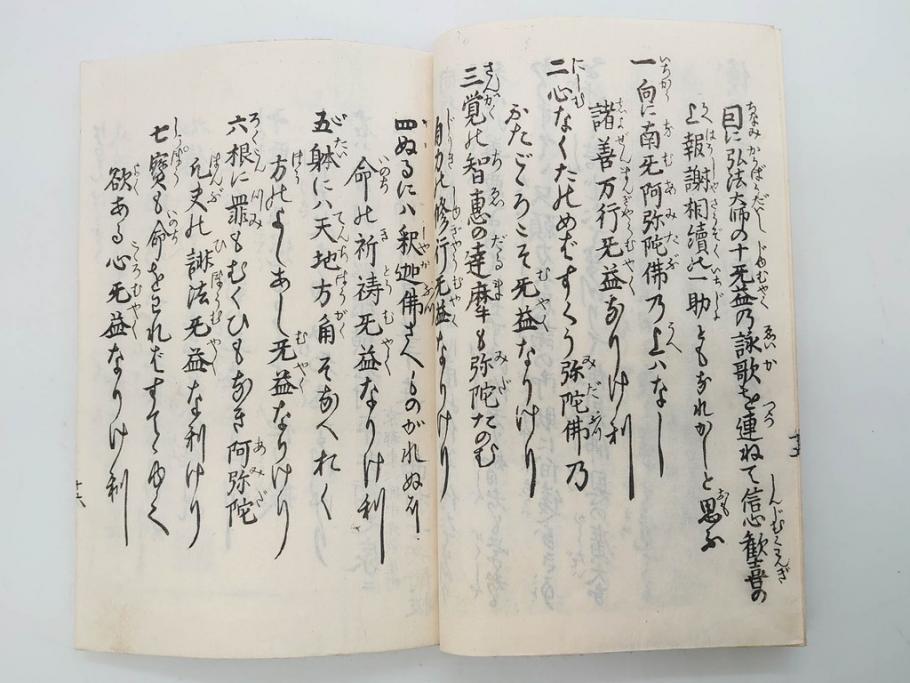 因に弘法大師の十无益乃詠歌を連ねて信心歓喜の
上報謝相續の一助ともなれかしと思ふ
一向に南无阿弥陀佛乃上ハなし
諸善万行无益なりけ利
二心なくたのめバすくう弥陀佛乃
ふたごゝろこそ无益なりけり
三覚の智恵の達摩も弥陀たのむ
自力の修行无益なりけり
四ぬるにハ釈迦佛さへものがれぬに
命の祈祷无益なりけ利
五躰にハ天地方角そなへれく
方のよしあし无益なりけり
六根に罪もむくひもなき阿弥陀
凡夫の誹法无益な利けり
七寳も命をはれバすてゝゆく
欲ある心无益なりけ利
十六